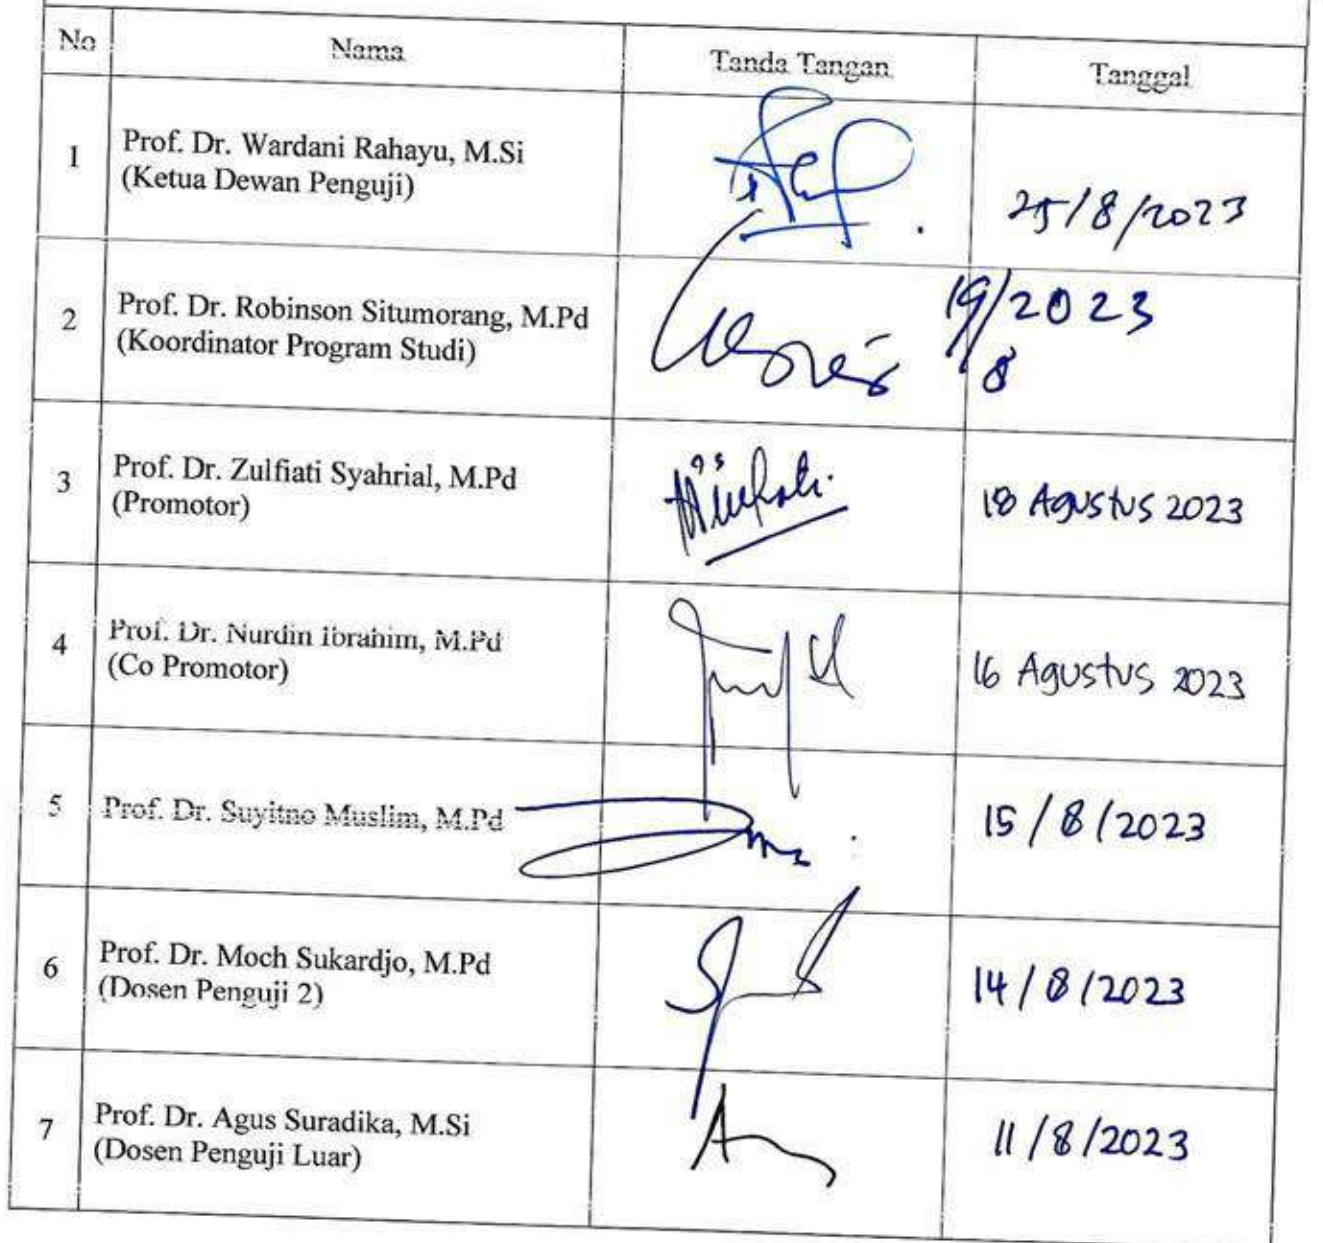 No Nama Tanda Tangan Tanggal
1 Prof. Dr. Wardani Rahayu, M.Si
(Ketua Dewan Penguji)
25/8/2023
2 Prof. Dr. Robinson Situmorang, M.Pd
(Koordinator Program Studi)
19/2023
8
3 Prof. Dr. Zulfiati Syahrial, M.Pd
(Promotor)
18 Agustus 2023
4 Prof. Dr. Nurdin Ibrahim, M.Pd
(Co Promotor)
16 Agustus 2023
5 Prof. Dr. Suyitno Muslim, M.Pd
15/8/2023
6 Prof. Dr. Moch Sukardjo, M.Pd
(Dosen Penguji 2)
14/8/2023
7 Prof. Dr. Agus Suradika, M.Si
(Dosen Penguji Luar)
11/8/2023